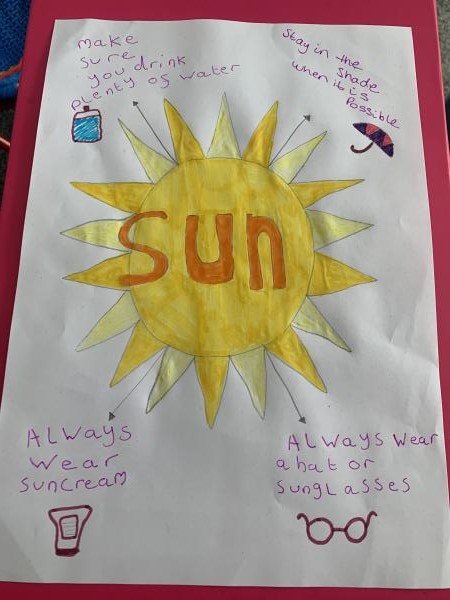 Make
sure
you drink
plenty of water
Stay in the
shade
when it is
Possible
Sun
ALWays
Wear
suncream
ALWAYS Wear
a hat or
sungLasses